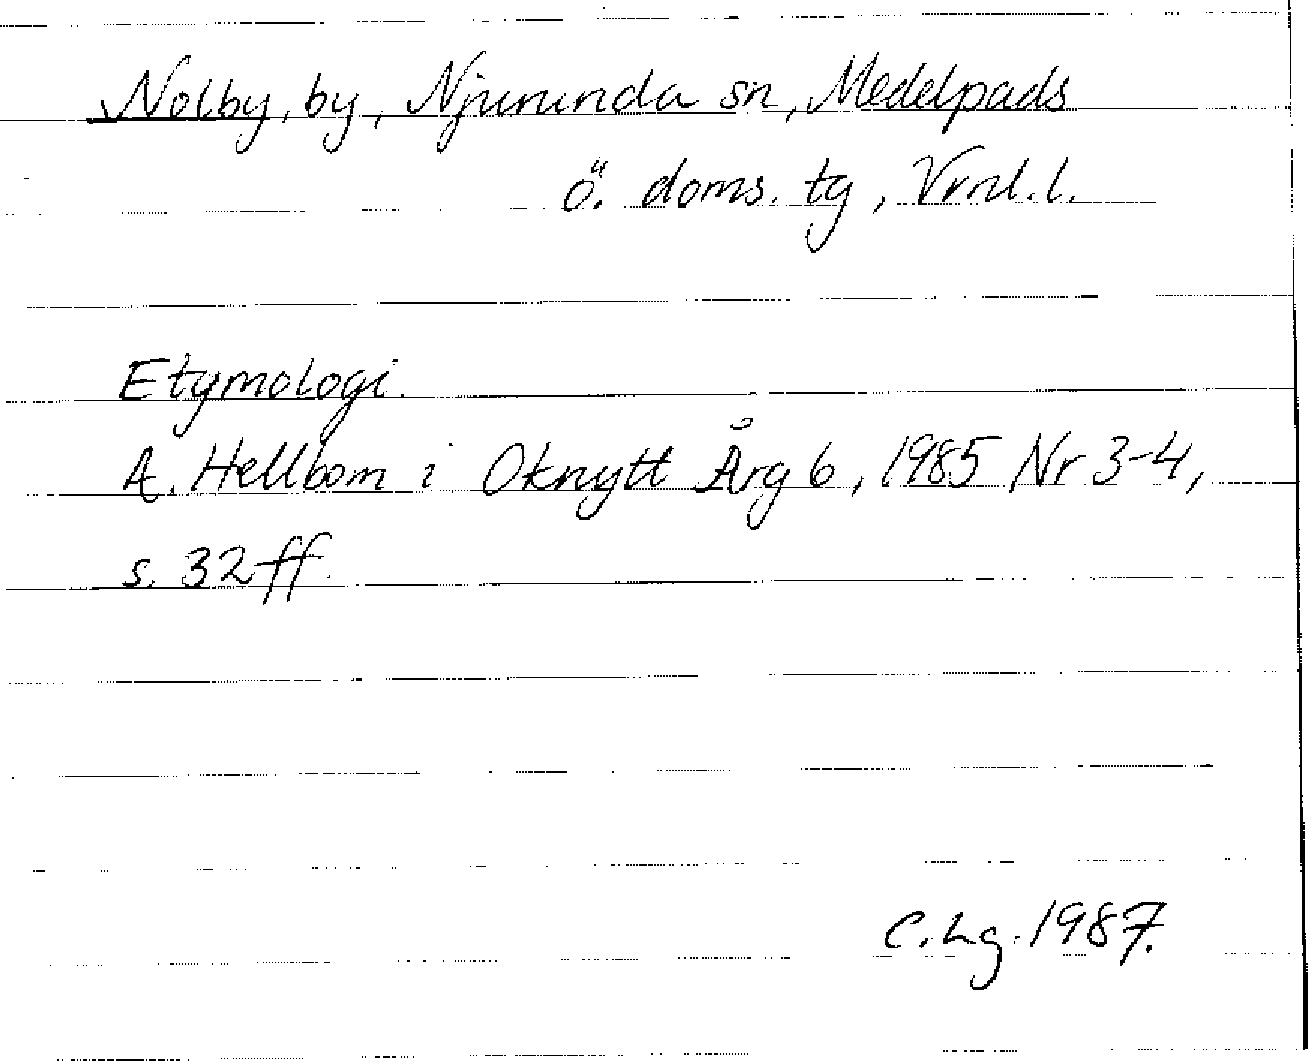 Nolby, by, Njurunda sn, Medelpads
ö. doms. tg, Vrnl. l.
Etymologi.
Æ. Hellbom i Oknytt Årg 6, 1985 Nr 3-4,
s. 32 ff.
C. Lg. 1987.